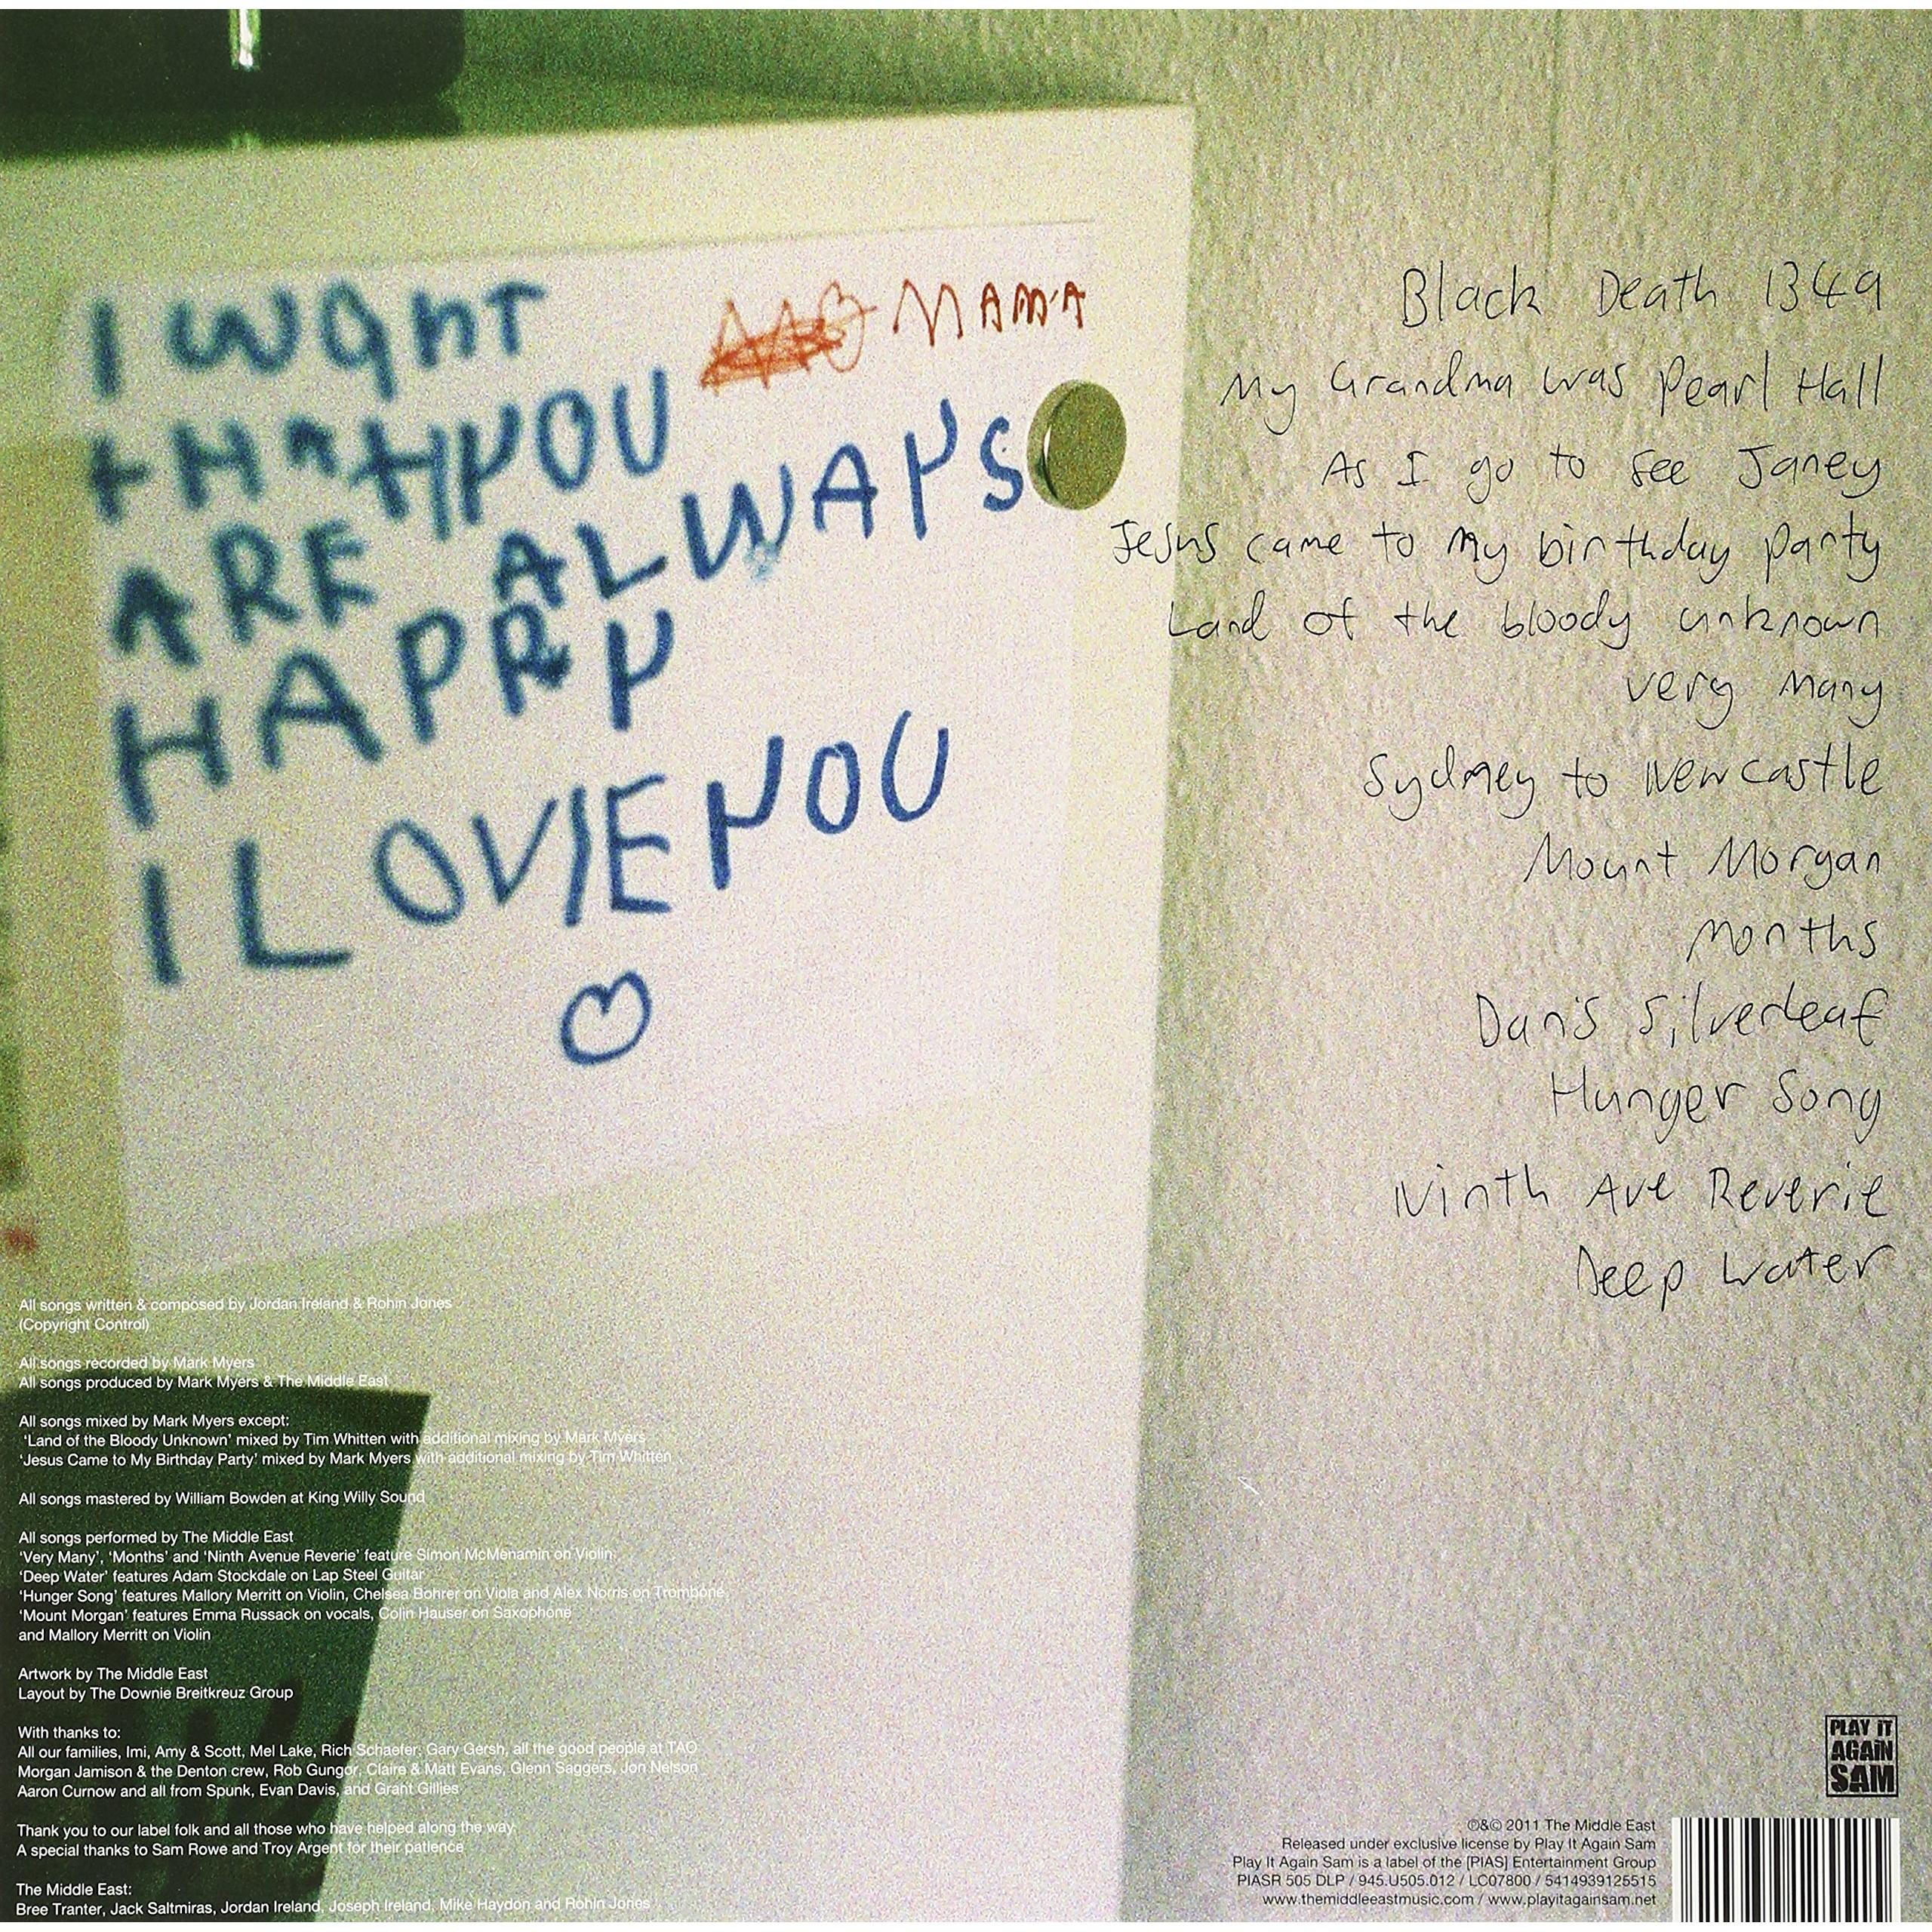 I WANT
MAMA
THAT YOU
ARE ALWAYS
HAPPY
I LOVIE YOU
Black Death 1349
My Grandma was Pearl Hall
As I go to see Janey
Jesus came to my birthday party
Land of the bloody unknown
very many
Sydney to Newcastle
Mount Morgan
Months
Dan's Silverleaf
Hunger Song
Ninth Ave Reverie
Deep Water
All songs written & composed by Jordan Ireland & Rohin Jones
(Copyright Control)
All songs recorded by Mark Myers
All songs produced by Mark Myers & The Middle East
All songs mixed by Mark Myers except:
‘Land of the Bloody Unknown’ mixed by Tim Whitten with additional mixing by Mark Myers
‘Jesus Came to My Birthday Party’ mixed by Mark Myers with additional mixing by Tim Whitten
All songs mastered by William Bowden at King Willy Sound
All songs performed by The Middle East
‘Very Many’, ‘Months’ and ‘Ninth Avenue Reverie’ feature Simon McMenamin on Violin
‘Deep Water’ features Adam Stockdale on Lap Steel Guitar
‘Hunger Song’ features Mallory Merritt on Violin, Chelsea Bohrer on Viola and Alex Norris on Trombone
‘Mount Morgan’ features Emma Russack on vocals, Colin Hauser on Saxophone
and Mallory Merritt on Violin
Artwork by The Middle East
Layout by The Downie Breitkreuz Group
With thanks to:
All our families, Imi, Amy & Scott, Mel Lake, Rich Schaefer, Gary Gersh, all the good people at TAO
Morgan Jamison & the Denton crew, Rob Gungor, Claire & Matt Evans, Glenn Saggers, Jon Nelson
Aaron Curnow and all from Spunk, Evan Davis, and Grant Gillies
Thank you to our label folk and all those who have helped along the way.
A special thanks to Sam Rowe and Troy Argent for their patience
The Middle East:
Bree Tranter, Jack Saltmiras, Jordan Ireland, Joseph Ireland, Mike Haydon and Rohin Jones
PLAY IT
AGAIN
SAM
℗&© 2011 The Middle East
Released under exclusive license by Play It Again Sam
Play It Again Sam is a label of the [PIAS] Entertainment Group
PIASR 505 DLP / 945.U505.012 / LC07800 / 5414939125515
www.themiddleeastmusic.com / www.playitagainsam.net